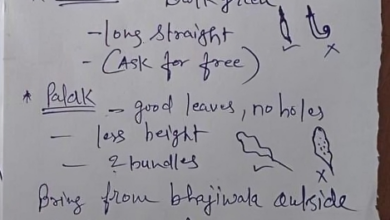 - long straight
- (Ask for free)
* Palak - good leaves, no holes
- less height
- 2 bundles
Bring from bhajiwala outside